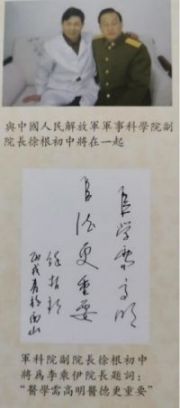 與中國人民解放軍軍事科學院副
院長徐根初中將在一起
醫學需高明
醫德更重要
徐根初
丙戌春於香山
軍科院副院長徐根初中
將爲李乘伊院長題詞：
“醫學需高明醫德更重要”